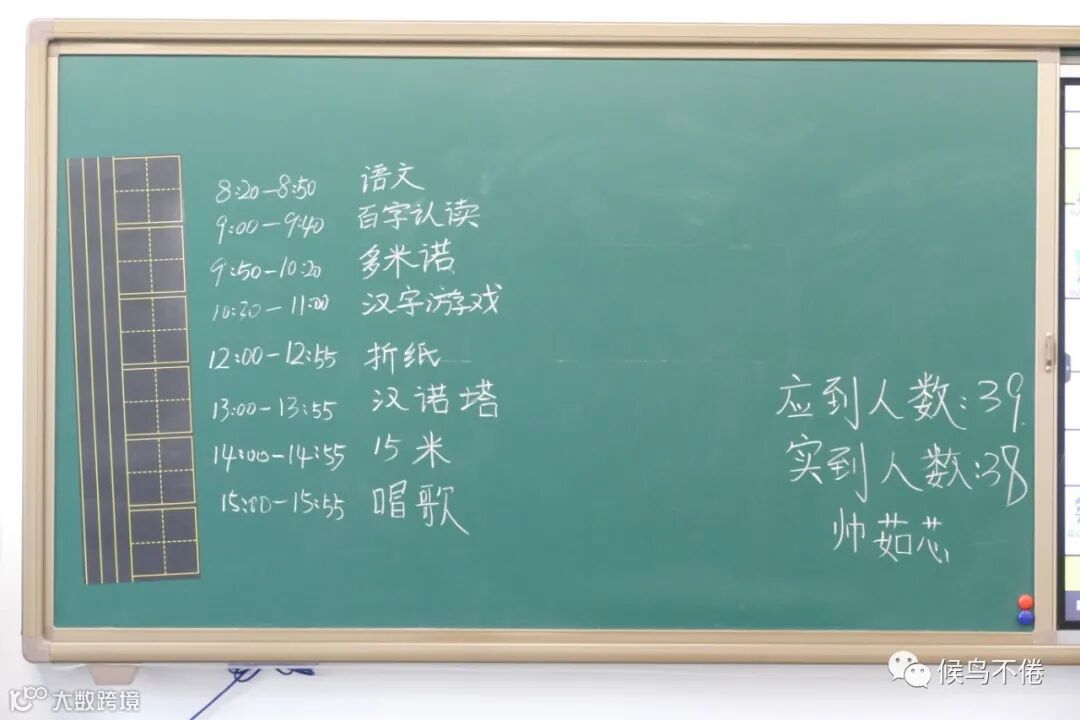 8:20-8:50 语文
9:00-9:40 百字认读
9:50-10:20 多米诺
10:30-11:00 汉字游戏
12:00-12:55 折纸
13:00-13:55 汉诺塔
14:00-14:55 15米
15:00-15:55 唱歌
应到人数:39
实到人数:38
帅茹芯
候鸟不倦
大数跨境